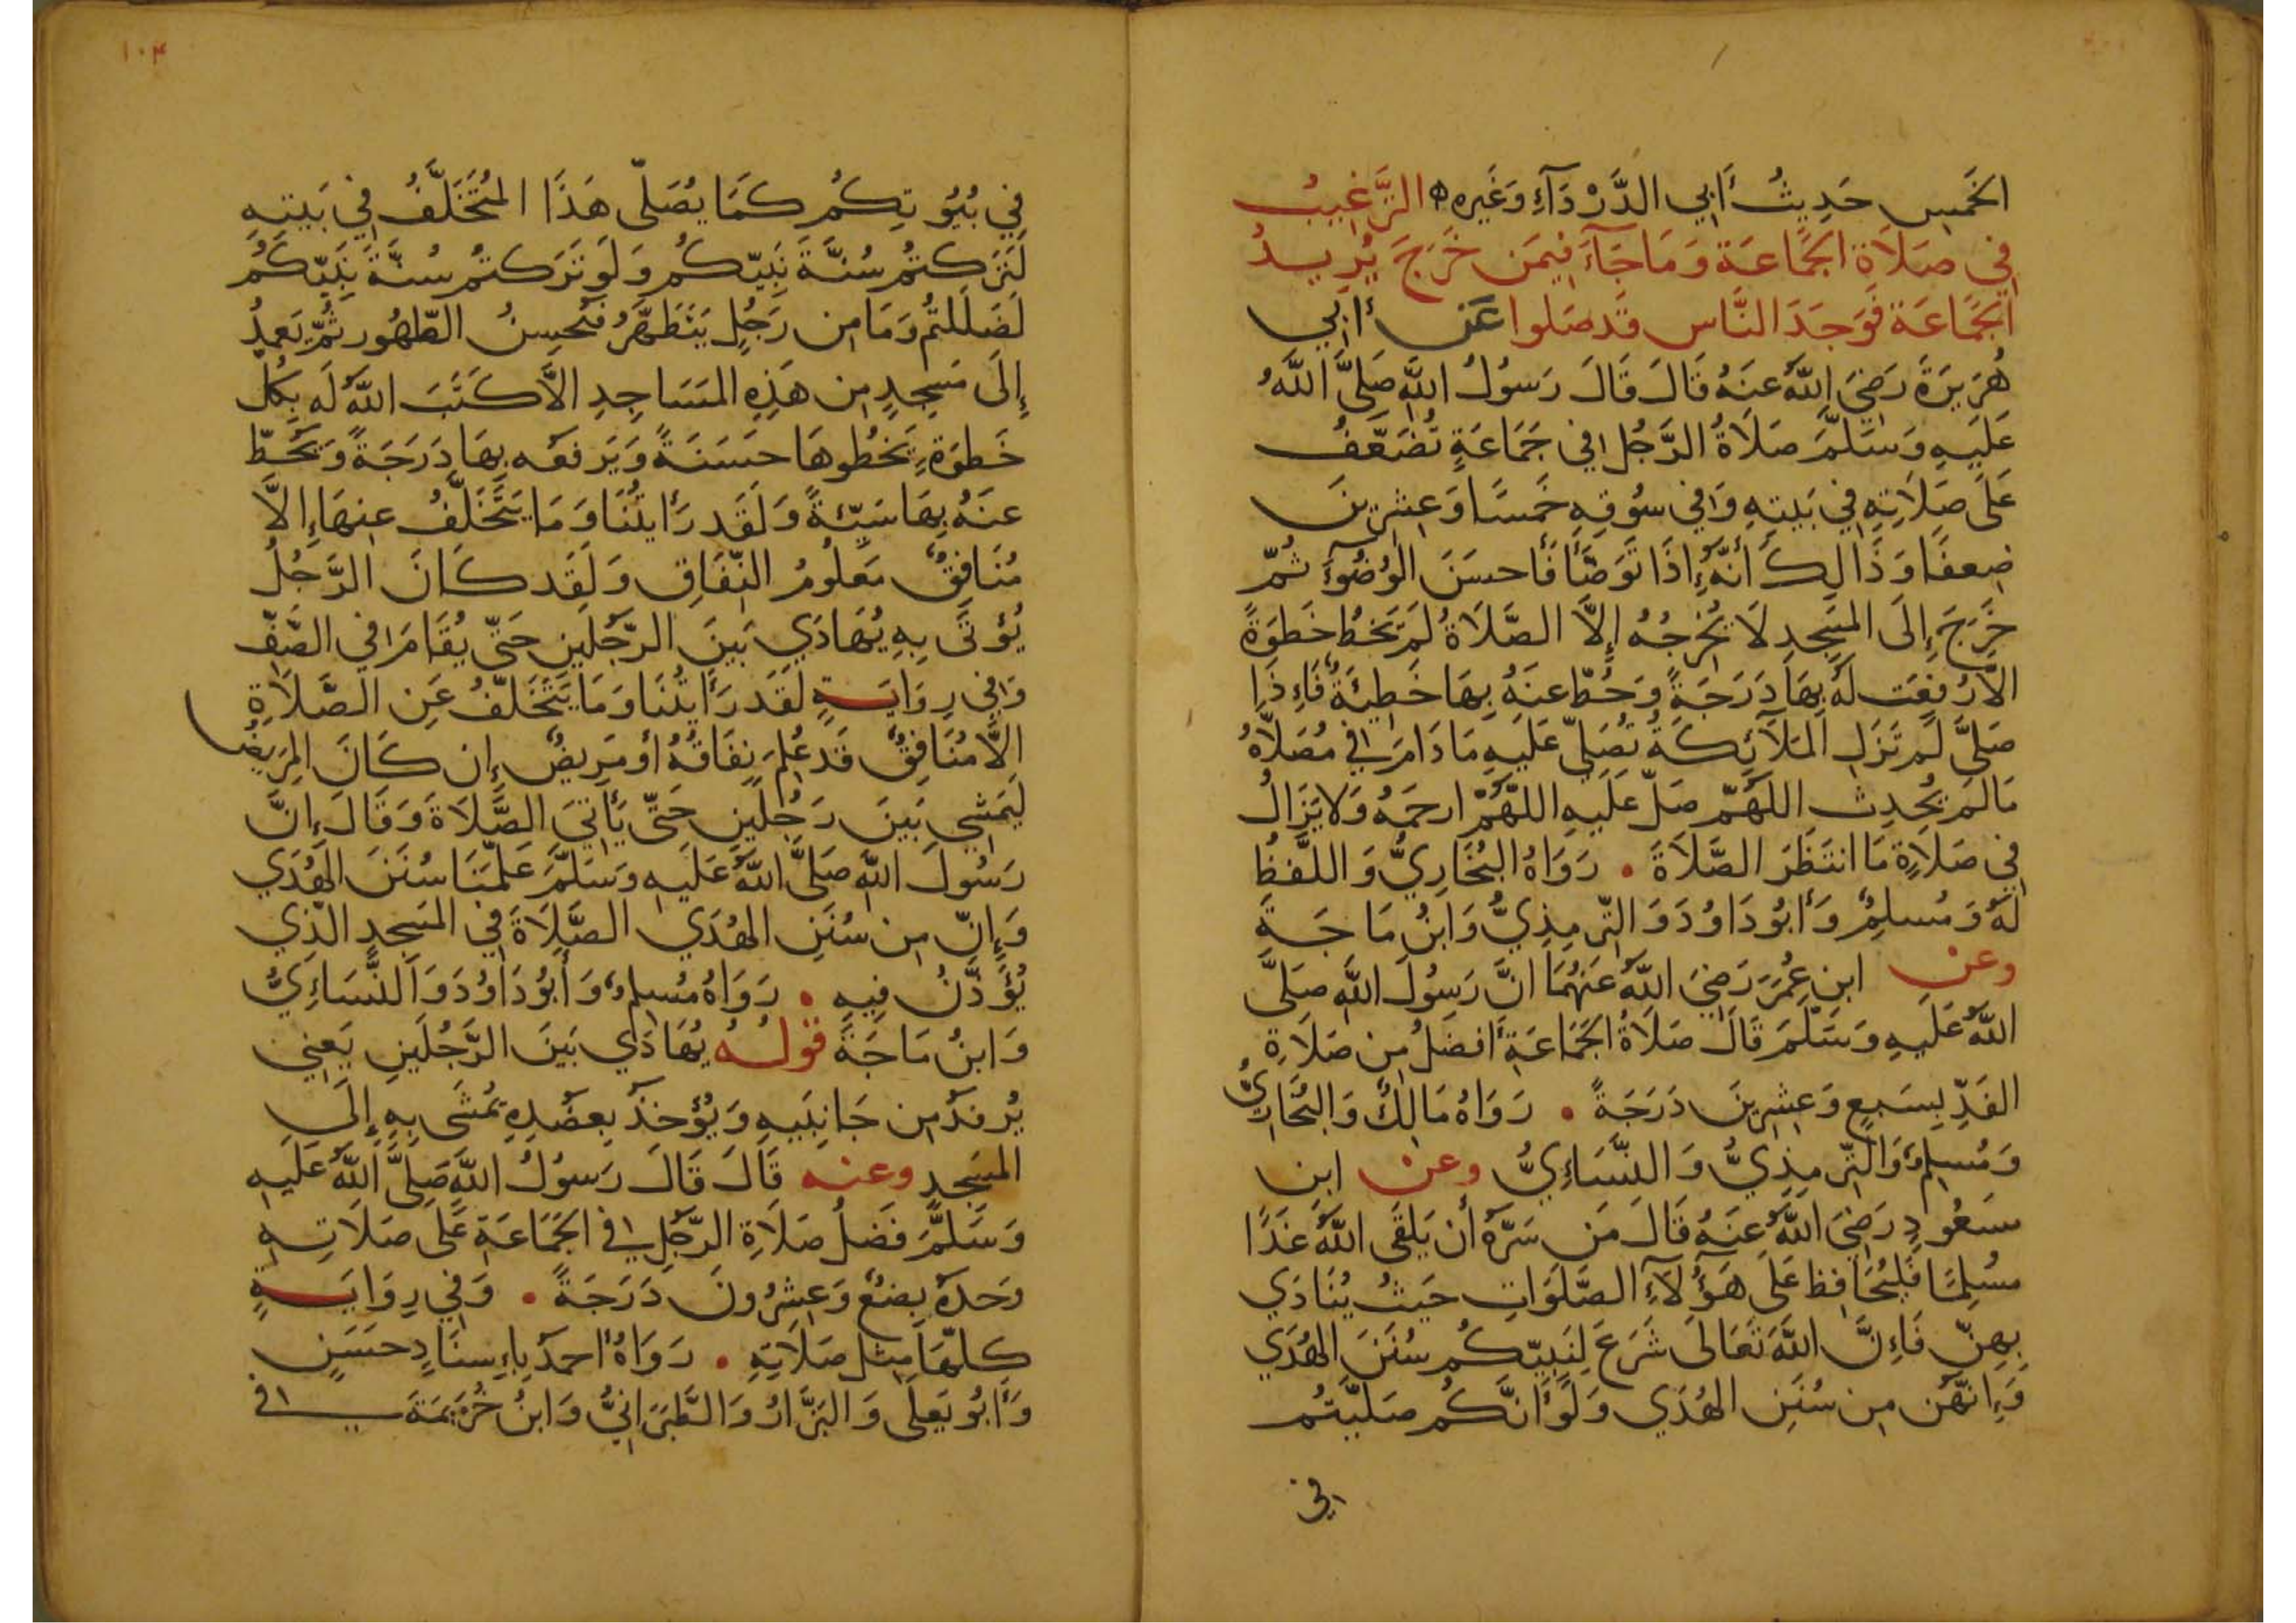 الخَمسِ حَدِيثُ أَبِي الدَّرْدَآءِ وَغَيرِهِ ه التَّرغِيبُ
فِي صَلَاةِ الجَمَاعَة وَمَا جَآءَ فِيمَن خَرَجَ يُرِيدُ
الجَمَاعَة فَوَجَدَ النَّاس قَد صَلوا عَن أَبِي
هُرَيرَةَ رَضِيَ اللَّهُ عَنهُ قَالَ قَالَ رَسُولُ اللَّهِ صَلَّى اللَّهُ
عَلَيهِ وَسَلَّمَ صَلَاةُ الرَّجُلِ فِي جَمَاعَةٍ تُضَعَّفُ
عَلَى صَلَاتِهِ فِي بَيتِهِ وَفِي سُوقِهِ خَمسًا وَعِشرِينَ
ضِعفًا وَذَالِكَ أَنَّهُ إِذَا تَوَضَّأَ فَأَحسَنَ الوُضُوءَ ثُمَّ
خَرَجَ إِلَى المَسجِدِ لَا يُخرِجُهُ إِلَّا الصَّلَاةُ لَم يَخطُ خَطوَةً
الَّا رُفِعَت لَهُ بِهَا دَرَجَةٌ وَحُطَّ عَنهُ بِهَا خَطِيئَةٌ فَإِذَا
صَلَّى لَم تَزَلِ المَلَآئِكَةُ تُصَلِّي عَلَيهِ مَا دَامَ فِي مُصَلَّاهُ
مَا لَم يُحدِث اللَّهُمَّ صَلِّ عَلَيهِ اللَّهُمَّ ارحَمهُ وَلَا يَزَالُ
فِي صَلَاةٍ مَا انتَظَرَ الصَّلَاةَ . رَوَاهُ البُخَارِيُّ وَاللَّفظُ
لَهُ وَمُسلِمٌ وَأَبُو دَاوُدَ وَالتِّرمِذِيُّ وَابنُ مَاجَة
وعن ابنِ عُمَرَ رَضِيَ اللَّهُ عَنهُمَا انَّ رَسُولَ اللَّهِ صَلَّى
اللَّهُ عَلَيهِ وَسَلَّمَ قَالَ صَلَاةُ الجَمَاعَةِ أَفضَلُ مِن صَلَاةِ
الفَذِّ بِسَبعٍ وَعِشرِينَ دَرَجَةً . رَوَاهُ مَالِكٌ وَالبُخَارِيُّ
وَمُسلِمٌ وَالتِّرمِذِيُّ وَالنَّسَاءِيُّ وعن ابن
مسَعُودٍ رَضِيَ اللَّهُ عَنهُ قَالَ مَن سَرَّهُ أَن يَلقَى اللَّهَ غَدًا
مُسلِمًا فَليُحَافِظ عَلَى هَؤُلَآءِ الصَّلَوَاتِ حَيثُ يُنَادَي
بِهِنَّ فَإِنَّ اللَّهَ تَعَالَى شَرَعَ لِنَبِيِّكُم سُنَنَ الهُدَي
وَإِنَّهُن مِن سُنَنِ الهُدَي وَلَو أَنَّكُم صَلَّيتُم
في
١٠٤
فِي بُيُوتِكُم كَمَا يُصَلِّى هَذَا المُتَخَلِّفُ فِي بَيتِهِ
لَتَرَكتُم سُنَّةَ نَبِيِّكُم وَلَو تَرَكتُم سُنَّةَ نَبِيِّكُم
لَضَلَلتُم وَمَا مِن رَجُلٍ يَتَطَهَّرُ فَيُحسِنُ الطّهُور ثُمَّ يَعمِدُ
إِلَى مَسجِدٍ مِن هَذِهِ المَسَاجِدِ الَّا كَتَبَ اللَّهُ لَه بِكُلِّ
خَطوَةٍ يَخطُوهَا حَسَنَةً وَيَرفَعُه بِهَا دَرَجَةً وَيَحُطّ
عَنهُ بِهَا سَيِّئَةً وَلَقَد رَأَيتُنَا وَمَا يَتَخَلَّفُ عَنهَا إِلَّا
مُنَافِقٌ مَعلُومُ النِّفَاقِ وَلَقَد كَانَ الرَّجُلُ
يُؤتَى بِهِ يُهَادَي بَينَ الرَّجُلَينِ حَتَّى يُقَامَ فِي الصَّفِّ
وَفِي رِوَايَةٍ لَقَد رَأَيتُنَا وَمَا يَتَخَلَّفُ عَنِ الصَّلَاةِ
الَّا مُنَافِقٌ قَد عُلِمَ نِفَاقُهُ أَو مَرِيضٌ إِن كَانَ المَرِيضُ
لَيَمشِي بَينَ رَجُلَينِ حَتَّى يَأتِيَ الصَّلَاةَ وَقَالَ إِنَّ
رَسُولَ اللَّهِ صَلَّى اللَّهُ عَلَيهِ وَسَلَّمَ عَلَّمَنَا سُنَنَ الهُدَي
وَإِنَّ مِن سُنَنِ الهُدَي الصَّلَاةَ فِي المَسجِدِ الَّذِي
يُؤَذَّنُ فِيهِ . رَوَاهُ مُسلِمٌ وَأَبُو دَاوُدَ وَالنَّسَاءِيُّ
وَابنُ مَاجَةَ قوله يُهَادَي بَينَ الرَّجُلَينِ يَعنِي
يُرفَدُ مِن جَانِبَيهِ وَيُؤخَذُ بِعَضُدِهِ يُمشَى بِهِ إِلَى
المَسجِدِ وعنه قَالَ قَالَ رَسُولُ اللَّهِ صَلَّى اللَّهُ عَلَيهِ
وَسَلَّمَ فَضلُ صَلَاةِ الرَّجُلِ فِي الجَمَاعَةِ عَلَى صَلَاتِهِ
وَحدَهُ بِضعٌ وَعِشرُونَ دَرَجَةً . وَفِي رِوَايَةٍ
كلّهَا مِثل صَلَاتِهِ . رَوَاهُ أحمدُ بِإِسنَادٍ حَسَنٍ
وَأَبُو يَعلَى وَالبَزَّارُ وَالطَّبَرَانِيُّ وَابنُ خُزَيمَةَ في